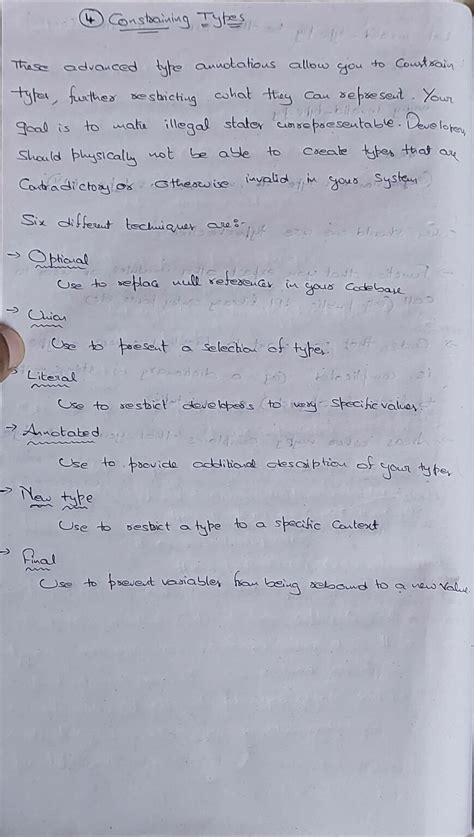 ④ Constraining Types
These advanced type annotations allow you to constrain
types, further restricting what they can represent. Your
goal is to make illegal states unrepresentable. Developers
should physically not be able to create types that are
Contradictory or Otherwise invalid in your System
Six different techniques are:-
→ Optional
Use to replace null references in your Codebase
→ Union
Use to present a selection of types
→ Literal
Use to restrict developers to very specific values
→ Annotated
Use to provide additional description of your types
→ New type
Use to restrict a type to a specific Context
→ Final
Use to prevent variables from being rebound to a new value.